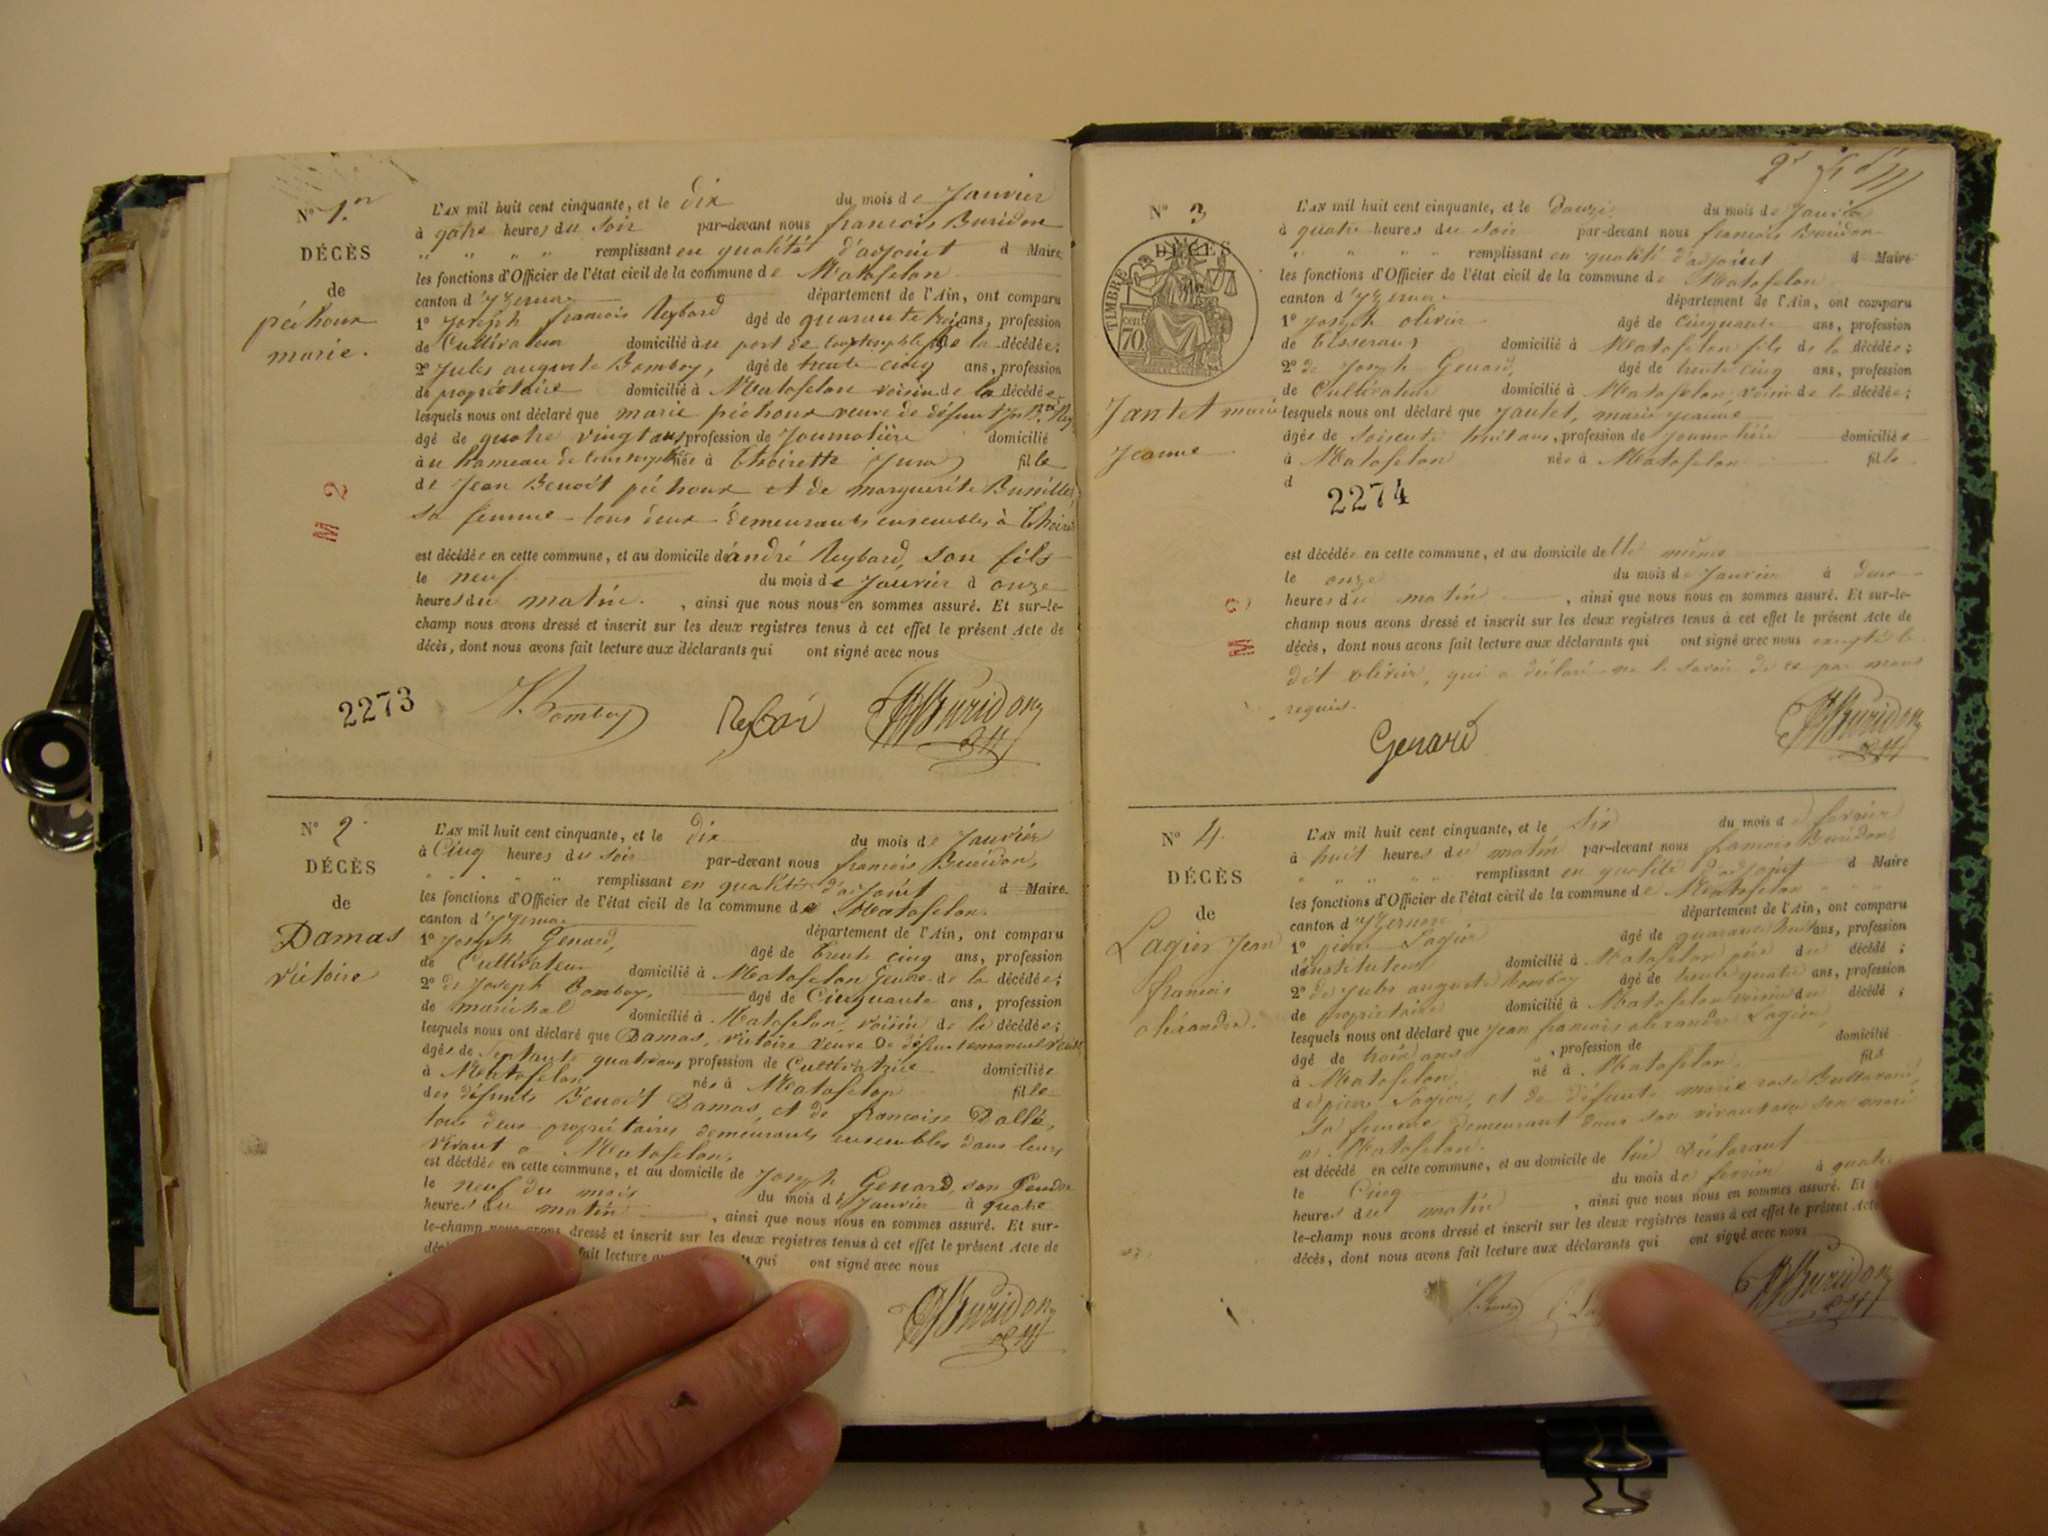 N° 1er
DÉCÈS
de
péchoux
marie.
L'AN mil huit cent cinquante, et le dix du mois de Janvier
à qatre heures du soir par-devant nous francois Buridon
" " " " remplissant en qualités d'adjoint d Maire
les fonctions d'Officier de l'état civil de la commune de Matafelon
canton d'Izernor département de l'Ain, ont comparu
1° Joseph francois Reybard âgé de quarante trois ans, profession
de Cultivateur domicilié au port de de la décédée;
2° Jules auguste Bomboy, âgé de trente cinq ans, profession
de propriétaire domicilié à Matafelon voisin de la décédée
lesquels nous ont déclaré que marie péchoux veuve de défunt
âgé de quatre vingt ans profession de Journalière domicilié
au hameau de née à Thoirette Jura fille
de Jean Benoit péchoux et de marguerite
sa femme tous deux demeurants ensembles à
est décédée en cette commune, et au domicile d'andré Reybard, son fils
le neuf du mois de Janvier à onze
heures du matin. , ainsi que nous nous en sommes assuré. Et sur-le-
champ nous avons dressé et inscrit sur les deux registres tenus à cet effet le présent Acte de
décès, dont nous avons fait lecture aux déclarants qui ont signé avec nous
2273
Bomboy Buridon
M 2
N° 2
DÉCÈS
de
Damas
victoire
L'AN mil huit cent cinquante, et le dix du mois de Janvier
à Cinq heures du soir par-devant nous francois Buridon,
" " " " remplissant en qualités d'adjoint d Maire.
les fonctions d'Officier de l'état civil de la commune de Matafelon
canton d'Izernor département de l'Ain, ont comparu
1° Joseph Genard, âgé de trente cinq ans, profession
de Cultivateur domicilié à Matafelon Gendre de la décédée;
2° de Joseph Bomboy, âgé de Cinquante ans, profession
de maréchal domicilié à Matafelon, voisin de la décédée;
lesquels nous ont déclaré que Damas, victoire veuve de défunt
âgée de Septante quatre ans profession de Cultivatrice domiciliée
à Matafelon née à Matafelon fille
des défunts Benoit Damas, et de francoise
tous deux propriétaires demeurants ensembles dans leurs
vivant à Matafelon,
est décédée en cette commune, et au domicile de Joseph Genard, son Gendre
le neuf du mois du mois de Janvier à quatre
heures du matin , ainsi que nous nous en sommes assuré. Et sur-
le-champ nous avons dressé et inscrit sur les deux registres tenus à cet effet le présent Acte de
fait lecture qui ont signé avec nous
Buridon
N° 3
DÉCÈS
TIMBRE
cent 70
Jantet marie
Jeanne
L'AN mil huit cent cinquante, et le Douze du mois de Janvier
à quatre heures du soir par-devant nous francois Buridon
" " " " remplissant en qualité d'adjoint d Maire
les fonctions d'Officier de l'état civil de la commune de Matafelon
canton d'Izernor département de l'Ain, ont comparu
1° Joseph olivier âgé de Cinquante ans, profession
de tisserant domicilié à Matafelon fils de la décédée;
2° de Joseph Genard, âgé de trente cinq ans, profession
de Cultivateur domicilié à Matafelon, voisin de la décédée;
lesquels nous ont déclaré que Jantet, marie Jeanne
âgée de soixante huit ans, profession de Journalière domiciliée
à Matafelon née à Matafelon fille
d
2274
est décédée en cette commune, et au domicile de lle même
le onze du mois de Janvier à deux
heures du matin , ainsi que nous nous en sommes assuré. Et sur-le-
champ nous avons dressé et inscrit sur les deux registres tenus à cet effet le présent Acte de
décès, dont nous avons fait lecture aux déclarants qui ont signé avec nous
dit olivier, qui a déclaré ne le savoir de ce par nous
requis.
Genard Buridon
M 2
N° 4
DÉCÈS
de
Lagier Jean
francois
alexandre.
L'AN mil huit cent cinquante, et le Six du mois de février
à huit heures du matin par-devant nous francois Buridon
" " " " remplissant en qualité d'adjoint d Maire
les fonctions d'Officier de l'état civil de la commune de Matafelon
canton d'Izernor département de l'Ain, ont comparu
1° pierre Lagier âgé de quarante huit ans, profession
d'instituteur domicilié à Matafelon père du décédé;
2° de Jules auguste Bomboy âgé de trente quatre ans, profession
de propriétaire domicilié à Matafelon voisin du décédé;
lesquels nous ont déclaré que Jean francois alexandre Lagier,
âgé de trois ans , profession de domicilié
à Matafelon, né à Matafelon, fils
de pierre Lagier, et de défunte marie rose
sa femme demeurant dans son vivant avec son mari
à Matafelon.
est décédé en cette commune, et au domicile de lui déclarant
le Cinq du mois de fevrier à quatre
heures du matin , ainsi que nous nous en sommes assuré. Et
le-champ nous avons dressé et inscrit sur les deux registres tenus à cet effet le présent Acte
décès, dont nous avons fait lecture aux déclarants qui ont signé avec nous
Buridon